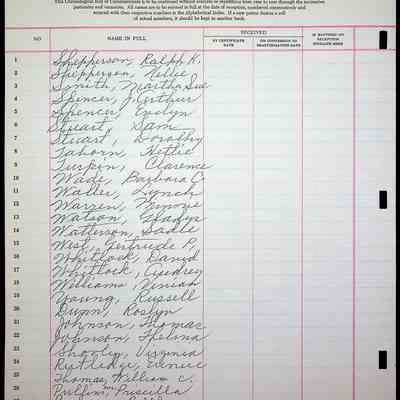 This Chronological Roll of Communicants is to be continued without erasures or repetitions from year to year through the successive
pastorates and vacancies. All names are to be entered in full at the date of reception, numbered consecutively and
entered with their respective numbers in the Alphabetical Index. If a new pastor desires a roll
of actual members, it should be kept in another book.
RECEIVED
NO NAME IN FULL BY CERTIFICATE DATE ON CONFESSION OR REAFFIRMATION DATE IF BAPTIZED ON RECEPTION INDICATE HERE
1 Shepperson, Ralph R.
2 Shepperson, Nellie
3 Smith, Martha Sue
4 Spencer, J. Arthur
5 Spencer, Evelyn
6 Stuart, Sam
7 Stuart, Dorothy
8 Tahorn, Hettie
9 Turpin, Clarence
10 Wade, Barbara C.
11 Waller, Lynch
12 Warren, Minnie
13 Watson, Gladys
14 Watterson, Sadie
15 West, Gertrude P.
16 Whitlock, David
17 Whitlock, Audrey
18 Williams, Vivian
19 Young, Russell
20 Dunn, Roslyn
21 Johnson, Thomas
22 Johnson, Thelma
23 Virginia
24 Rutledge, Eunice
25 Thomas, William C.
26 Priscilla